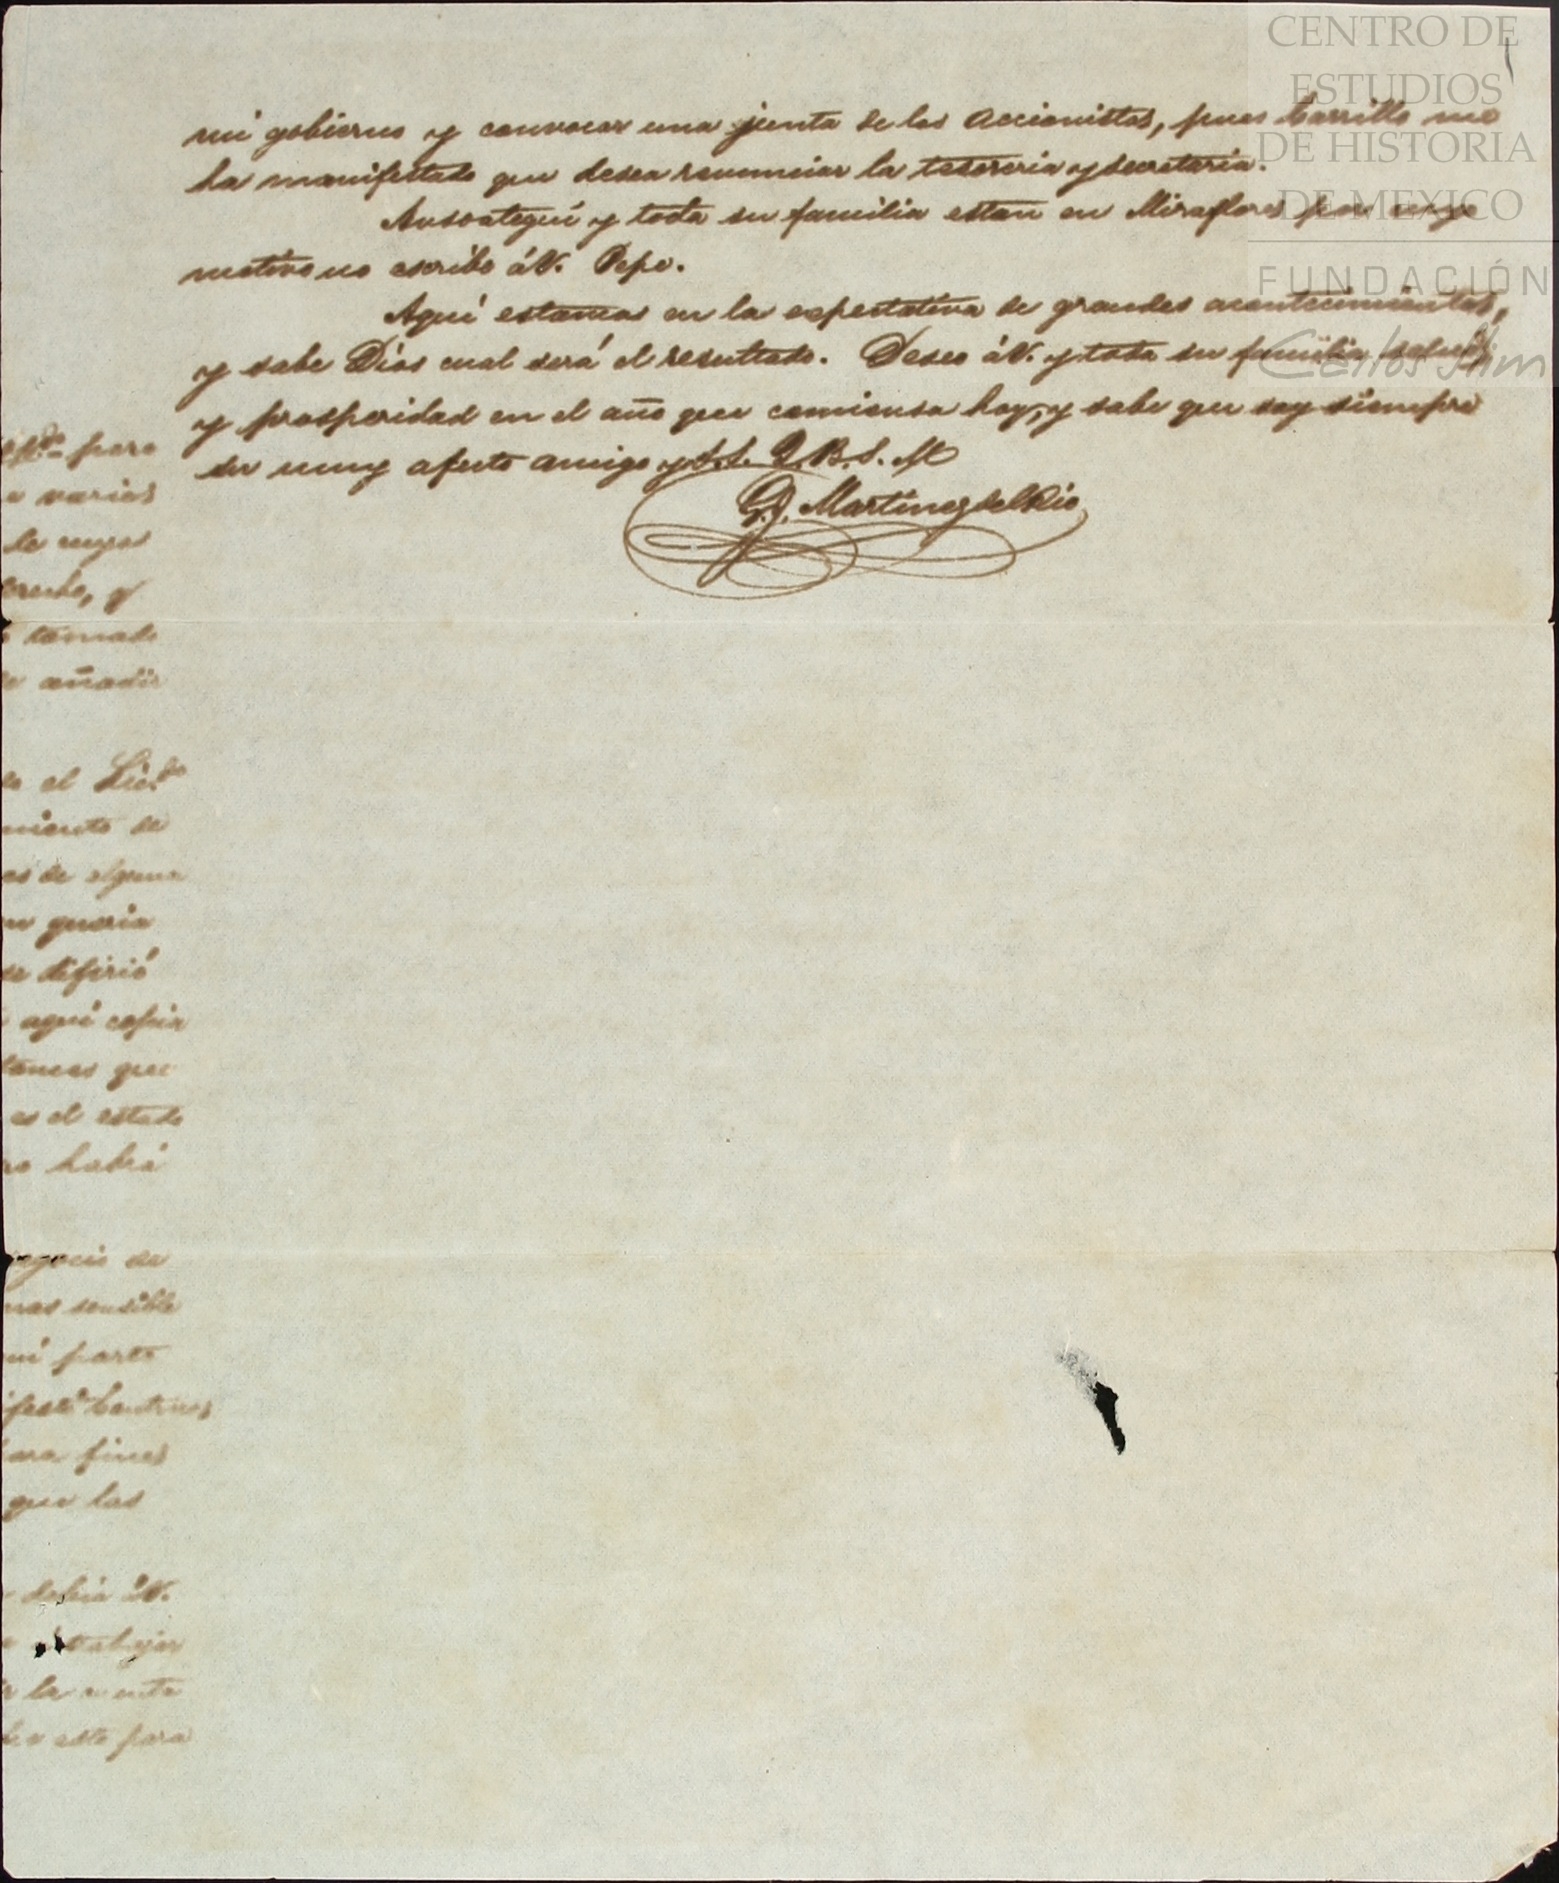 mi gobierno y convocar una junta de los accionistas, pues Carrillo me
ha manifestado que desea renunciar la tesoreria y secretaria.
Ansoategui y toda su familia estan en Miraflores por cuyo
motivo no escribe á V. Pepe.
Aqui estamos en la espectativa de grandes acontecimientos,
y sabe Dios cual será el resultado. Deseo á V. y toda su familia salud
y prosperidad en el año que comiensa hoy, y sabe que soy siempre
su muy afecto amigo y S.S. Q.B.S.M
Martinez del Rio
para
varias
de cuyos
derecho, y
tomado
añadir
el Licdo
miento de
de alguna
queria
se difirió
aqui copia
que
es el estado
habrá
negocio de
mas sensible
mi parte
fines
que las
debia á V.
trabajar
la
este para
CENTRO DE
ESTUDIOS
DE HISTORIA
DE MEXICO
FUNDACIÓN
Carlos Slim